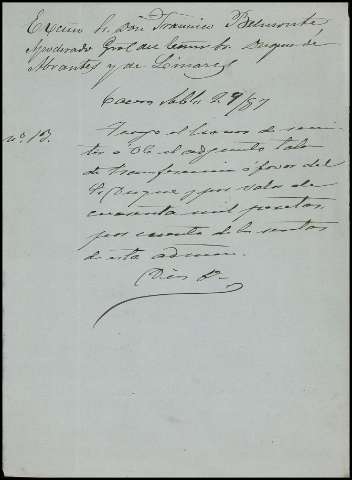 Excmo Sr. Don Francisco Belmonte
Apoderado Gral del Excmo Sr. Duque de
Abrantes y de Linares
29/87
nº 13.
Tengo el honor de remi-
tir á Ud el adjunto talon
de transferencia á favor del
Sr. Duque y por valor de
cuarenta mil pesetas
por cuenta de las rentas
de esta admon.
Dios &.